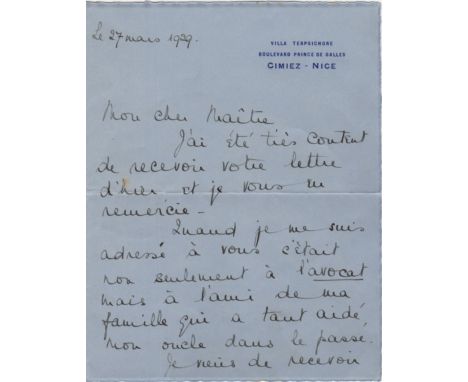 Le 27 mars 1929.
VILLA TERPSICHORE
BOULEVARD PRINCE DE GALLES
CIMIEZ - NICE
Mon cher Maître
J'ai été très content
de recevoir votre lettre
d'hier et je vous en
remercie -
Quand je me suis
adressé à vous c'était
non seulement à l'avocat
mais à l'ami de ma
famille qui a tant aidé
mon oncle dans le passé.
Je viens de recevoir